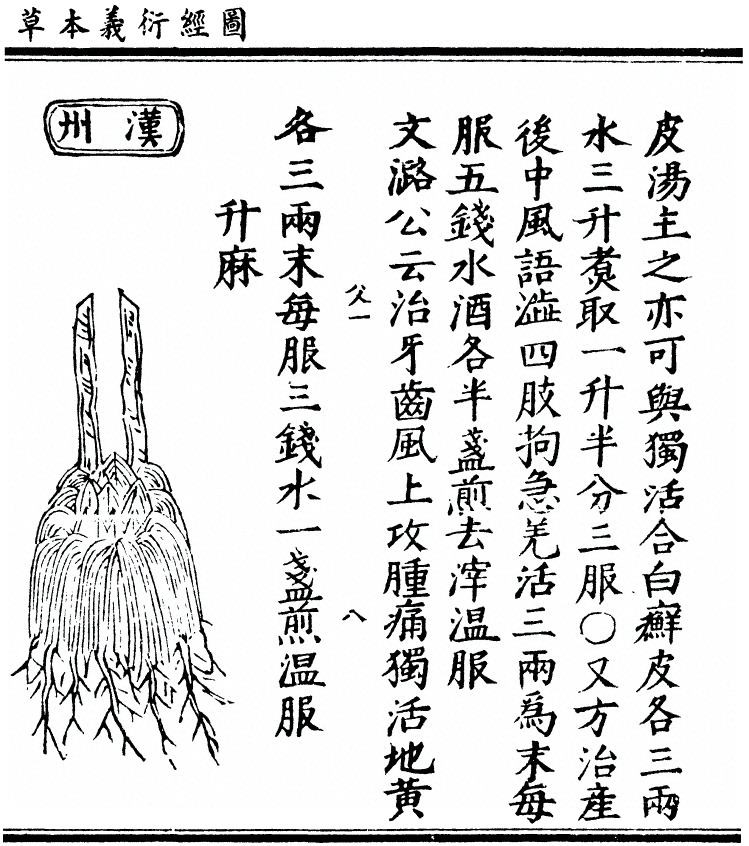 圖經衍義本草
皮湯主之亦可與獨活合白癬皮各三兩
水三升煑取一升半分三服○又方治產
後中風語澁四肢拘急羌活三兩爲末每
服五錢水酒各半盞煎去滓温服
文潞公云治牙齒風上攻腫痛獨活地黃
父一 八
各三兩末每服三錢水一盞煎温服
升麻
漢州